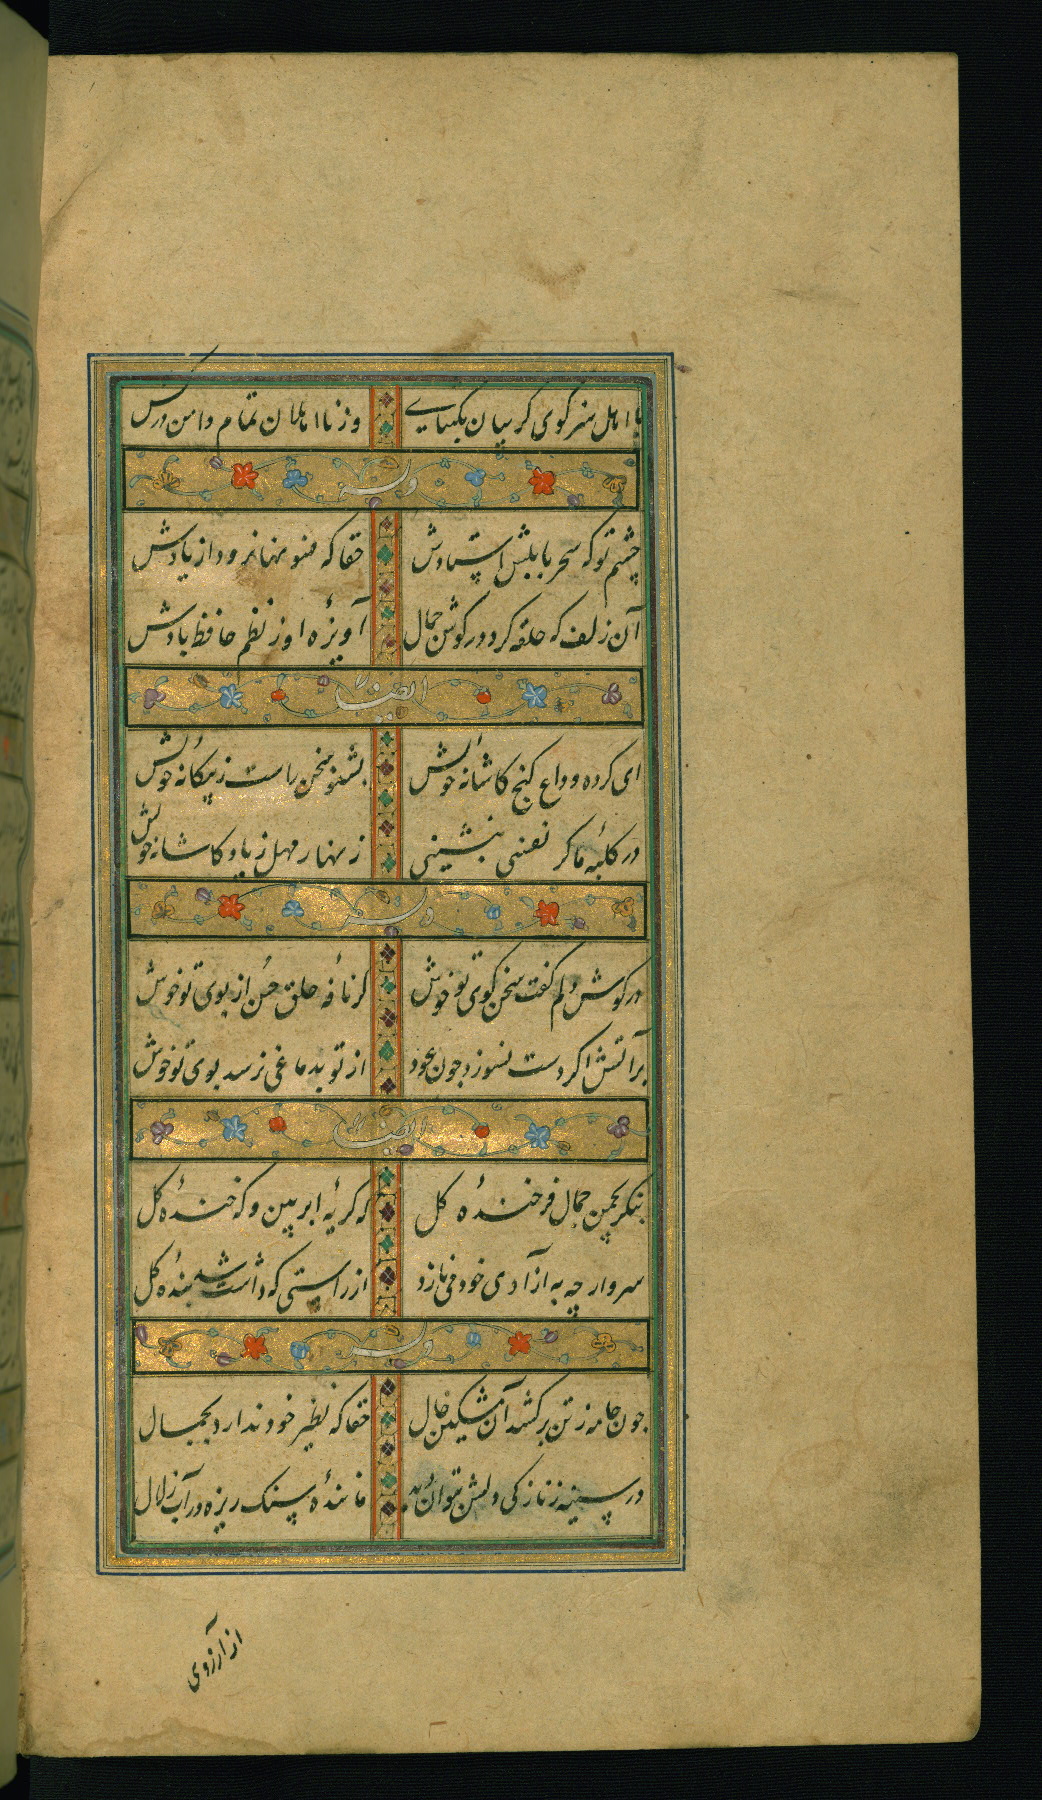 با اهل هنر گوی گریبان بگشای	وز نااهلان تمام دامن درکش
وله
چشم تو که سحر بابلش استادش	حقا که فسونها نرود از یادش
آن زلف که حلقه کرد در گوش جمال	آویزهٔ او ز نظم حافظ بادش
ایضا
ای کرده وداع کنج کاشانه خویش	بشنو سخن راست ز بیگانه خویش
در کلبهٔ ما گر نفسی بنشینی	زنهار مهل ز یاد کاشانه خویش
وله
در گوش دلم گفت سخن گوی تو خوش	کز نافه خلق حسن از بوی تو خوش
بر آتش اگر دست نسوزد چون عود	از تو بدماغی نرسد بوی تو خوش
ایضا
بنگر بچمن جمال فرخندهٔ گل	که گریهٔ ابر بین و که خندهٔ گل
سرو ار چه به آزادی خود می نازد	از راستی که داشت شد بندهٔ گل
وله
چون جامه ز تن برکشد آن مشکین خال	حقا که نظیر خود ندارد بجمال
در سینه ز نازکی دلش بتوان دید	مانندهٔ سنک ریزه در آب زلال
از آرزوی